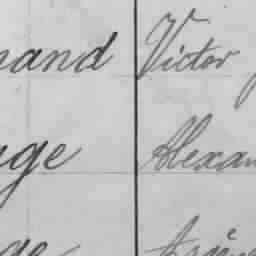 nand Victor
ge Alexan
ge